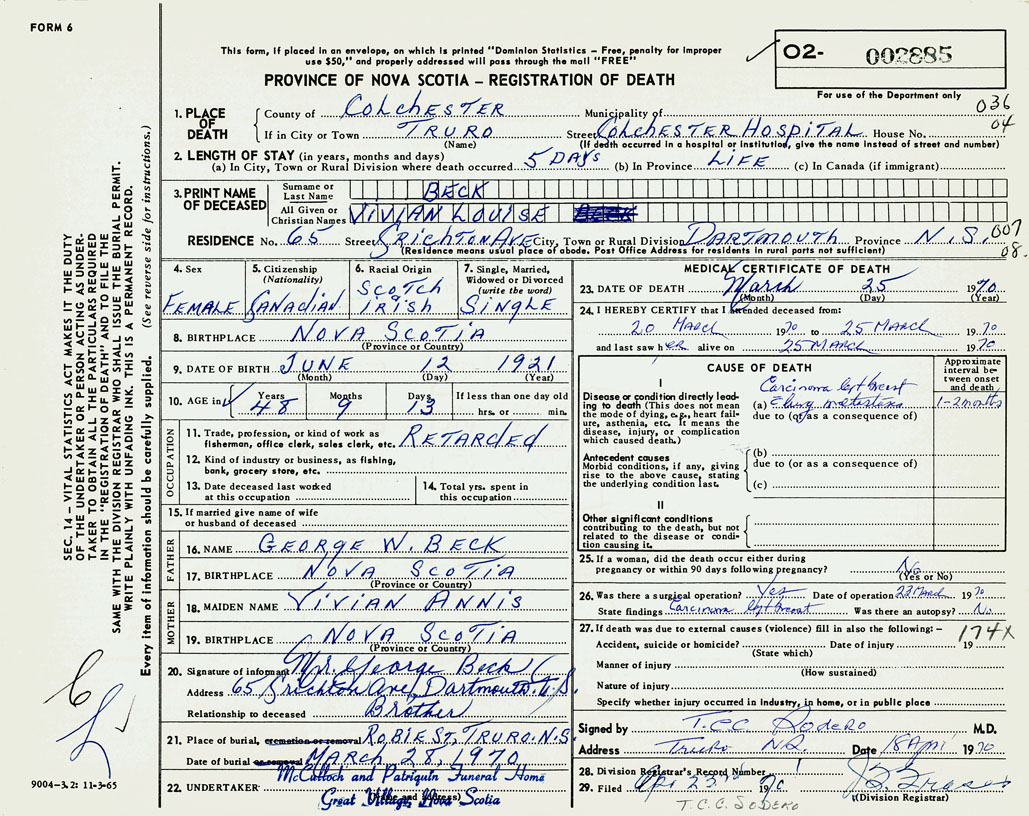 FORM 6
This form, if placed in an envelope, on which is printed "Dominion Statistics – Free, penalty for improper
use $50," and properly addressed will pass through the mail "FREE"
O2- 002885
PROVINCE OF NOVA SCOTIA – REGISTRATION OF DEATH
For use of the Department only
036
04
1. PLACE OF DEATH
County of COLCHESTER Municipality of
If in City or Town TRURO Street COLCHESTER HOSPITAL House No.
(Name) (If death occurred in a hospital or institution, give the name instead of street and number)
2. LENGTH OF STAY (in years, months and days)
(a) In City, Town or Rural Division where death occurred 5 DAYS (b) In Province LIFE (c) In Canada (if immigrant)
3. PRINT NAME OF DECEASED
Surname or Last Name BECK
All Given or Christian Names VIVIAN LOUISE BECK
RESIDENCE No. 65 Street CRICHTON AVE City, Town or Rural Division DARTMOUTH Province N.S. 007
(Residence means usual place of abode. Post Office Address for residents in rural parts not sufficient) 08.
4. Sex FEMALE
5. Citizenship (Nationality) CANADIAN
6. Racial Origin SCOTCH IRISH
7. Single, Married, Widowed or Divorced (write the word) SINGLE
8. BIRTHPLACE NOVA SCOTIA
(Province or Country)
9. DATE OF BIRTH JUNE 12 1921
(Month) (Day) (Year)
10. AGE in Years 48 Months 9 Days 13 If less than one day old hrs. or min.
OCCUPATION
11. Trade, profession, or kind of work as fisherman, office clerk, sales clerk, etc. RETARDED
12. Kind of industry or business, as fishing, bank, grocery store, etc.
13. Date deceased last worked at this occupation
14. Total yrs. spent in this occupation
15. If married give name of wife or husband of deceased
FATHER
16. NAME GEORGE W. BECK
17. BIRTHPLACE NOVA SCOTIA
(Province or Country)
MOTHER
18. MAIDEN NAME VIVIAN ANNIS
19. BIRTHPLACE NOVA SCOTIA
(Province or Country)
20. Signature of informant Mr. George Beck
Address 65 Crichton Ave, Dartmouth. N.S.
Relationship to deceased Brother
21. Place of burial, cremation or removal ROBIE ST., TRURO. N.S.
Date of burial or removal MARCH 28, 1970
22. UNDERTAKER McCulloch and Patriquin Funeral Home
(Name and address)
Great Village, Nova Scotia
MEDICAL CERTIFICATE OF DEATH
23. DATE OF DEATH March 25 1970
(Month) (Day) (Year)
24. I HEREBY CERTIFY that I attended deceased from:
20 MARCH 1970 to 25 MARCH 1970
and last saw her alive on 25 MARCH 1970
CAUSE OF DEATH
Approximate interval between onset and death
I
Disease or condition directly leading to death (This does not mean the mode of dying, e.g., heart failure, asthenia, etc. It means the disease, injury, or complication which caused death.)
Carcinoma left breast
(a) 1-2 months
due to (or as a consequence of)
Antecedent causes
Morbid conditions, if any, giving rise to the above cause, stating the underlying condition last.
(b)
due to (or as a consequence of)
(c)
II
Other significant conditions
contributing to the death, but not related to the disease or condition causing it.
25. If a woman, did the death occur either during pregnancy or within 90 days following pregnancy? No
(Yes or No)
26. Was there a surgical operation? Yes Date of operation 23 March 1970
State findings Carcinoma left breast Was there an autopsy? No
27. If death was due to external causes (violence) fill in also the following: – 174X
Accident, suicide or homicide? Date of injury 19
(State which)
Manner of injury
(How sustained)
Nature of injury
Specify whether injury occurred in industry, in home, or in public place
Signed by T.C.C. Sodero M.D.
Address Truro N.S. Date 18 Apr 1970
28. Division Registrar's Record Number
29. Filed Apr 23 1970
(Division Registrar)
T.C.C. SODERO
SEC. 14 – VITAL STATISTICS ACT MAKES IT THE DUTY
OF THE UNDERTAKER OR PERSON ACTING AS UNDER-
TAKER TO OBTAIN ALL THE PARTICULARS REQUIRED
IN THE "REGISTRATION OF DEATH" AND TO FILE THE
SAME WITH THE DIVISION REGISTRAR WHO SHALL ISSUE THE BURIAL PERMIT.
WRITE PLAINLY WITH UNFADING INK. THIS IS A PERMANENT RECORD.
Every item of information should be carefully supplied. (See reverse side for instructions.)
9004–3.2: 11-3-65